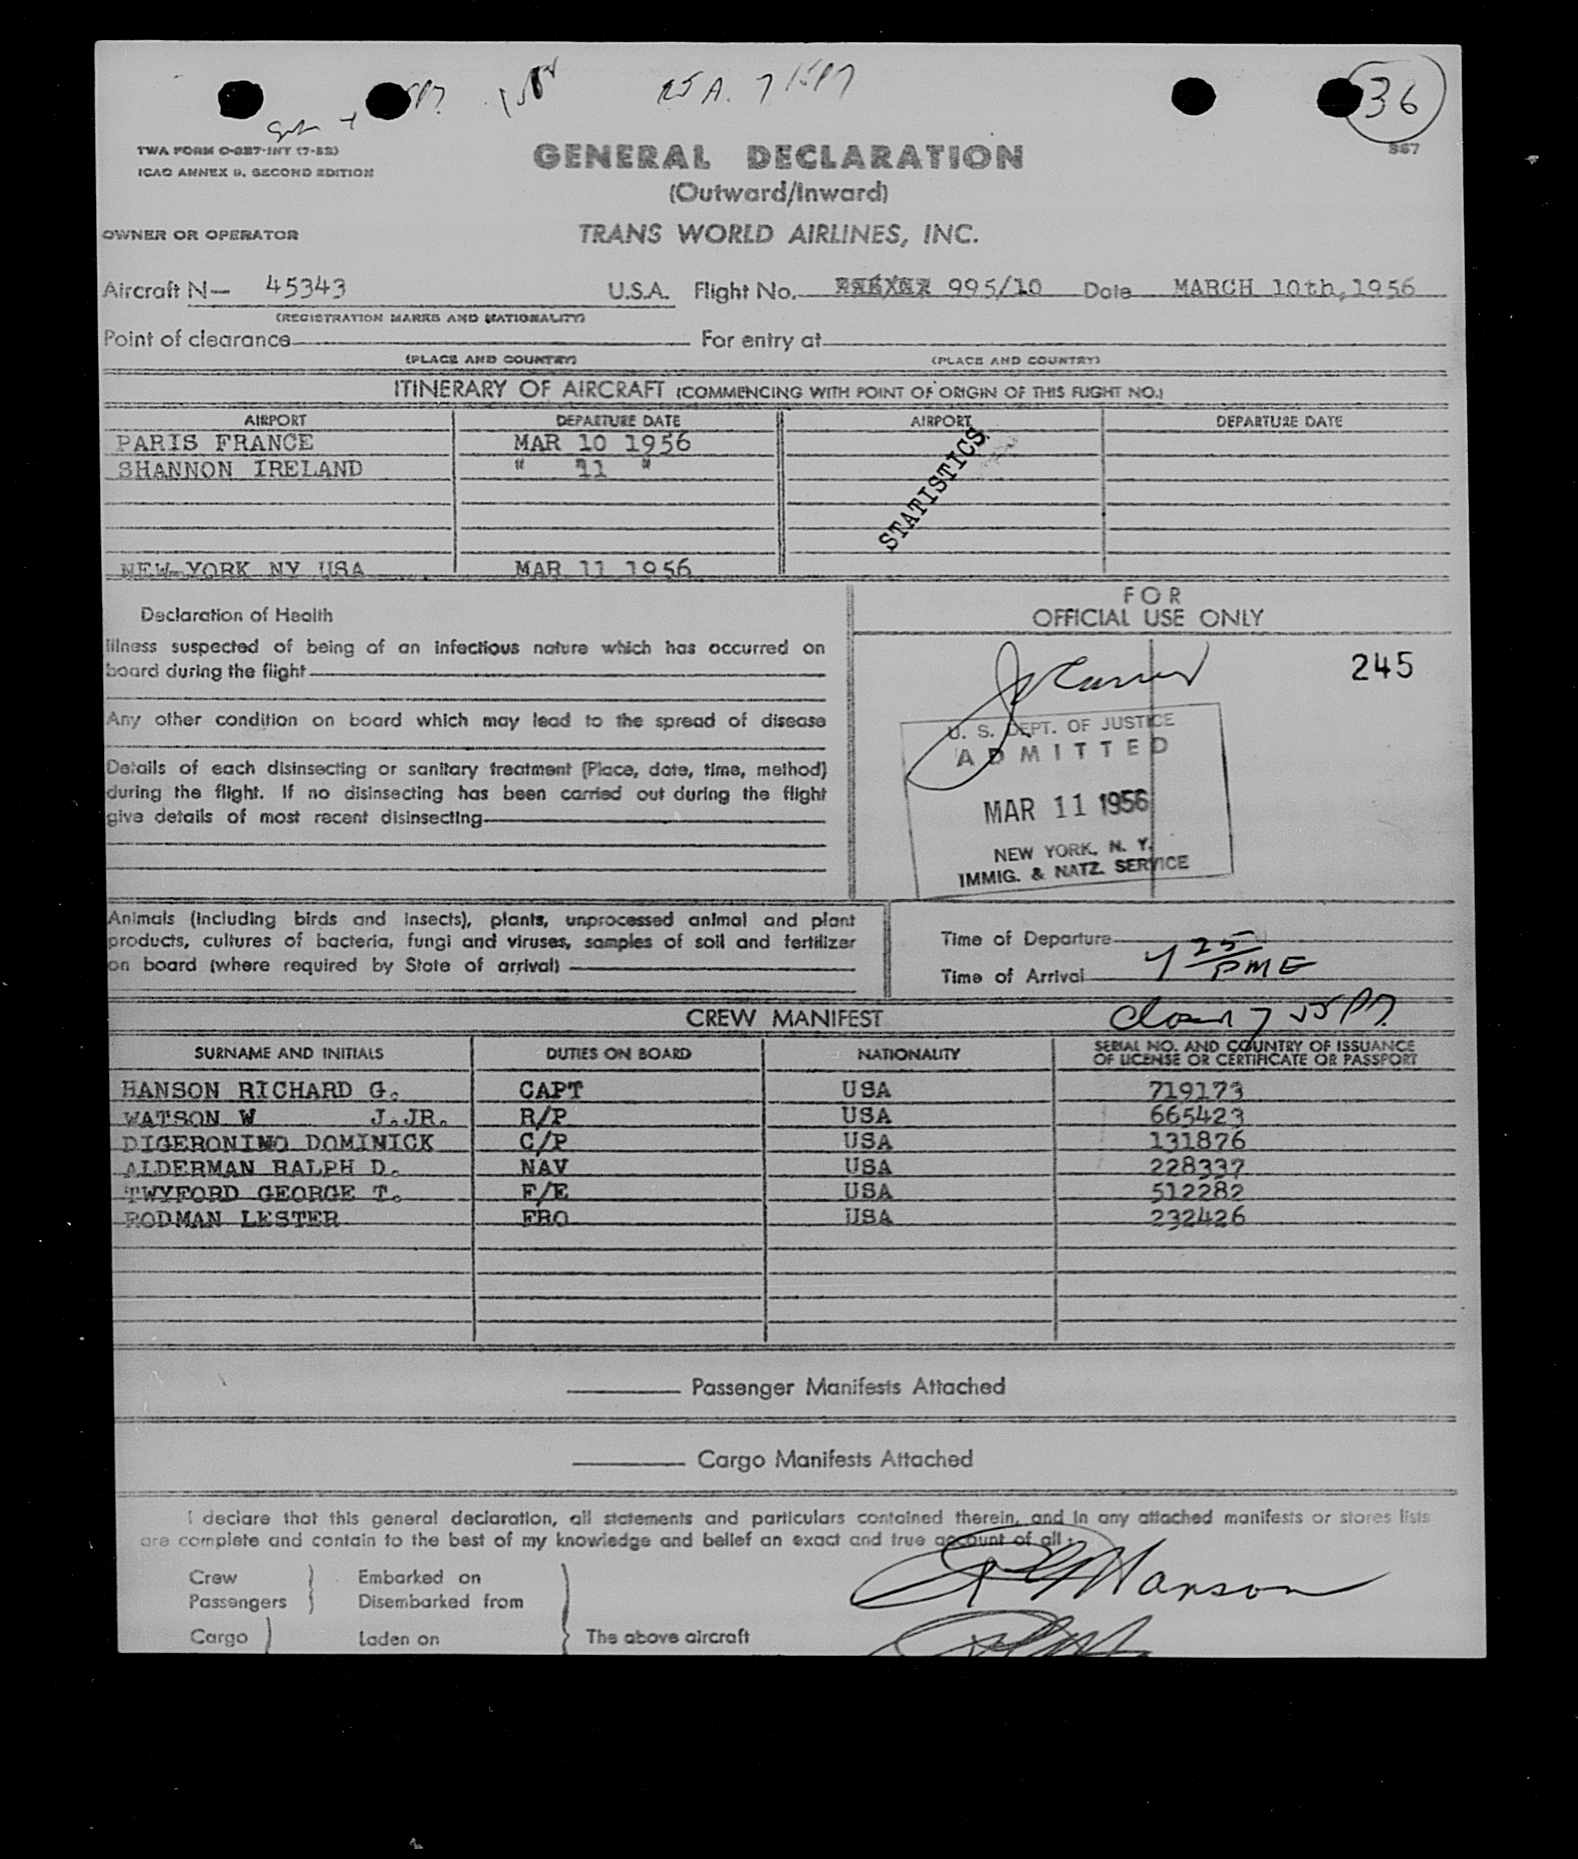 36
TWA FORM C-827-INT (7-52)
ICAO ANNEX 9, SECOND EDITION
GENERAL DECLARATION
(Outward/Inward)
OWNER OR OPERATOR
TRANS WORLD AIRLINES, INC.
Aircraft N— 45343 U.S.A. Flight No. 995/10 Date MARCH 10th, 1956
(REGISTRATION MARKS AND NATIONALITY)
Point of clearance For entry at
(PLACE AND COUNTRY) (PLACE AND COUNTRY)
ITINERARY OF AIRCRAFT (COMMENCING WITH POINT OF ORIGIN OF THIS FLIGHT NO.)
AIRPORT DEPARTURE DATE AIRPORT DEPARTURE DATE
PARIS FRANCE MAR 10 1956
SHANNON IRELAND " 11 "
STATISTICS
NEW YORK NY USA MAR 11 1956
Declaration of Health
Illness suspected of being of an infectious nature which has occurred on
board during the flight
Any other condition on board which may lead to the spread of disease
Details of each disinsecting or sanitary treatment (Place, date, time, method)
during the flight. If no disinsecting has been carried out during the flight
give details of most recent disinsecting
FOR
OFFICIAL USE ONLY
245
U. S. DEPT. OF JUSTICE
ADMITTED
MAR 11 1956
NEW YORK, N. Y.
IMMIG. & NATZ. SERVICE
Animals (including birds and insects), plants, unprocessed animal and plant
products, cultures of bacteria, fungi and viruses, samples of soil and fertilizer
on board (where required by State of arrival)
Time of Departure
Time of Arrival 7 25 PME
CREW MANIFEST
SURNAME AND INITIALS DUTIES ON BOARD NATIONALITY SERIAL NO. AND COUNTRY OF ISSUANCE
OF LICENSE OR CERTIFICATE OR PASSPORT
HANSON RICHARD G. CAPT USA 719173
WATSON W J.JR. R/P USA 665423
DIGERONIMO DOMINICK C/P USA 131876
ALDERMAN RALPH D. NAV USA 228337
TWYFORD GEORGE T. F/E USA 512282
RODMAN LESTER FRO USA 232426
Passenger Manifests Attached
Cargo Manifests Attached
I declare that this general declaration, all statements and particulars contained therein, and in any attached manifests or stores lists
are complete and contain to the best of my knowledge and belief an exact and true account of all:
Crew Embarked on
Passengers Disembarked from
RG Hanson
Cargo Laden on The above aircraft